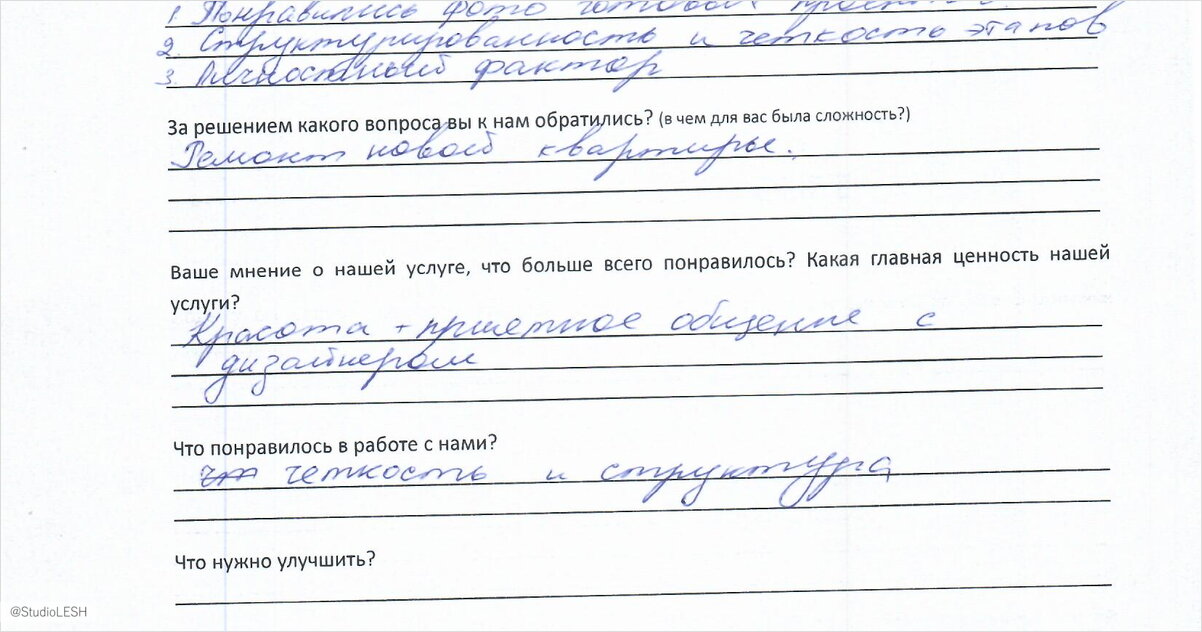 1. Понравились фото готовых
2. Структурированность и четкость этапов
3. Личностный фактор
За решением какого вопроса вы к нам обратились? (в чем для вас была сложность?)
Ремонт новой квартиры.
Ваше мнение о нашей услуге, что больше всего понравилось? Какая главная ценность нашей
услуги?
Красота + приятное общение с
дизайнером
Что понравилось в работе с нами?
четкость и структура
Что нужно улучшить?
@StudioLESH